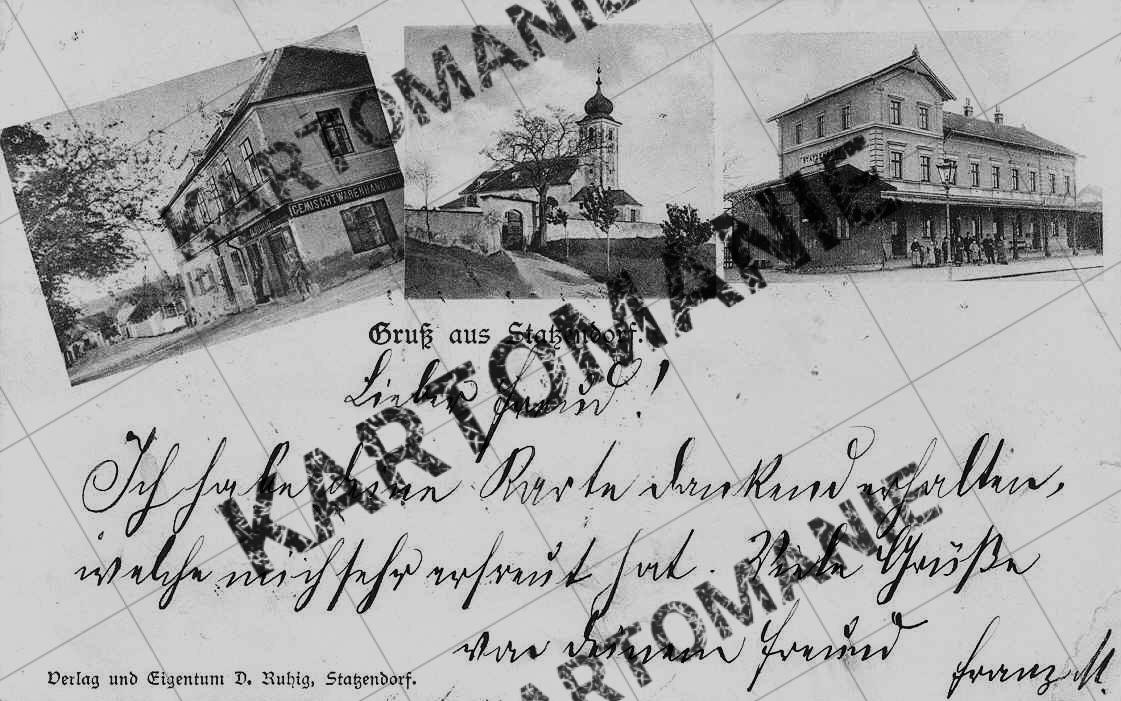 GEMISCHTWARENHANDLUNG
STATZENDORF
Gruß aus Statzendorf.
Lieber Freund!
Ich habe deine Karte dankend erhalten,
welche mich sehr erfreut hat. Viele Grüße
von deinem Freund
Franz M.
Verlag und Eigentum D. Ruhig, Statzendorf.
KARTOMANIE
KARTOMANIE
KARTOMANIE